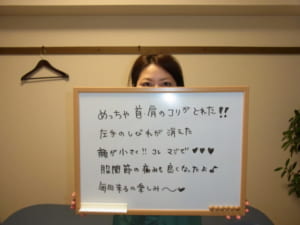 めっちゃ 首・肩のコリが とれた!!
左手のしびれが 消えた
顔が小さく!! コレ マジで ♥♥♥
股関節の痛みも 良くなったよ♪
毎回来るの楽しみ〜♥